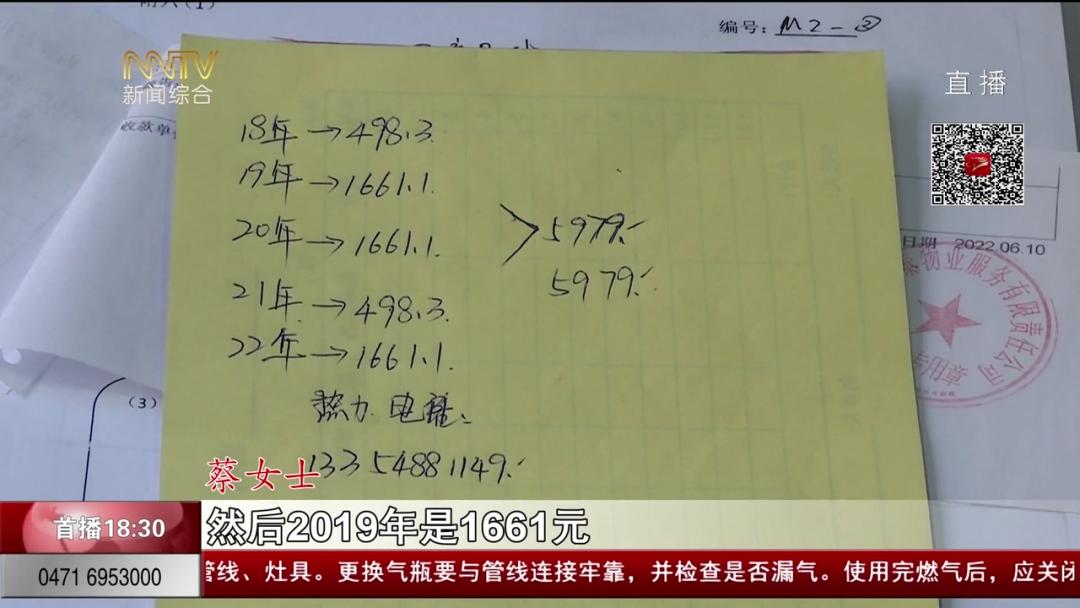 附入(1)
编号: M2-③
NMTV
新闻综合
直播
收款单
18年→498.3.
19年→1661.1.
20年→1661.1.
5979.
5979.
21年→498.3.
22年→1661.1.
热力.电话:
13354881149.
日期 2022.06.10
物业服务有限责任公司
专用章
(3)
蔡女士
然后2019年是1661元
首播18:30
0471 6953000
管线、灶具。更换气瓶要与管线连接牢靠,并检查是否漏气。使用完燃气后,应关闭